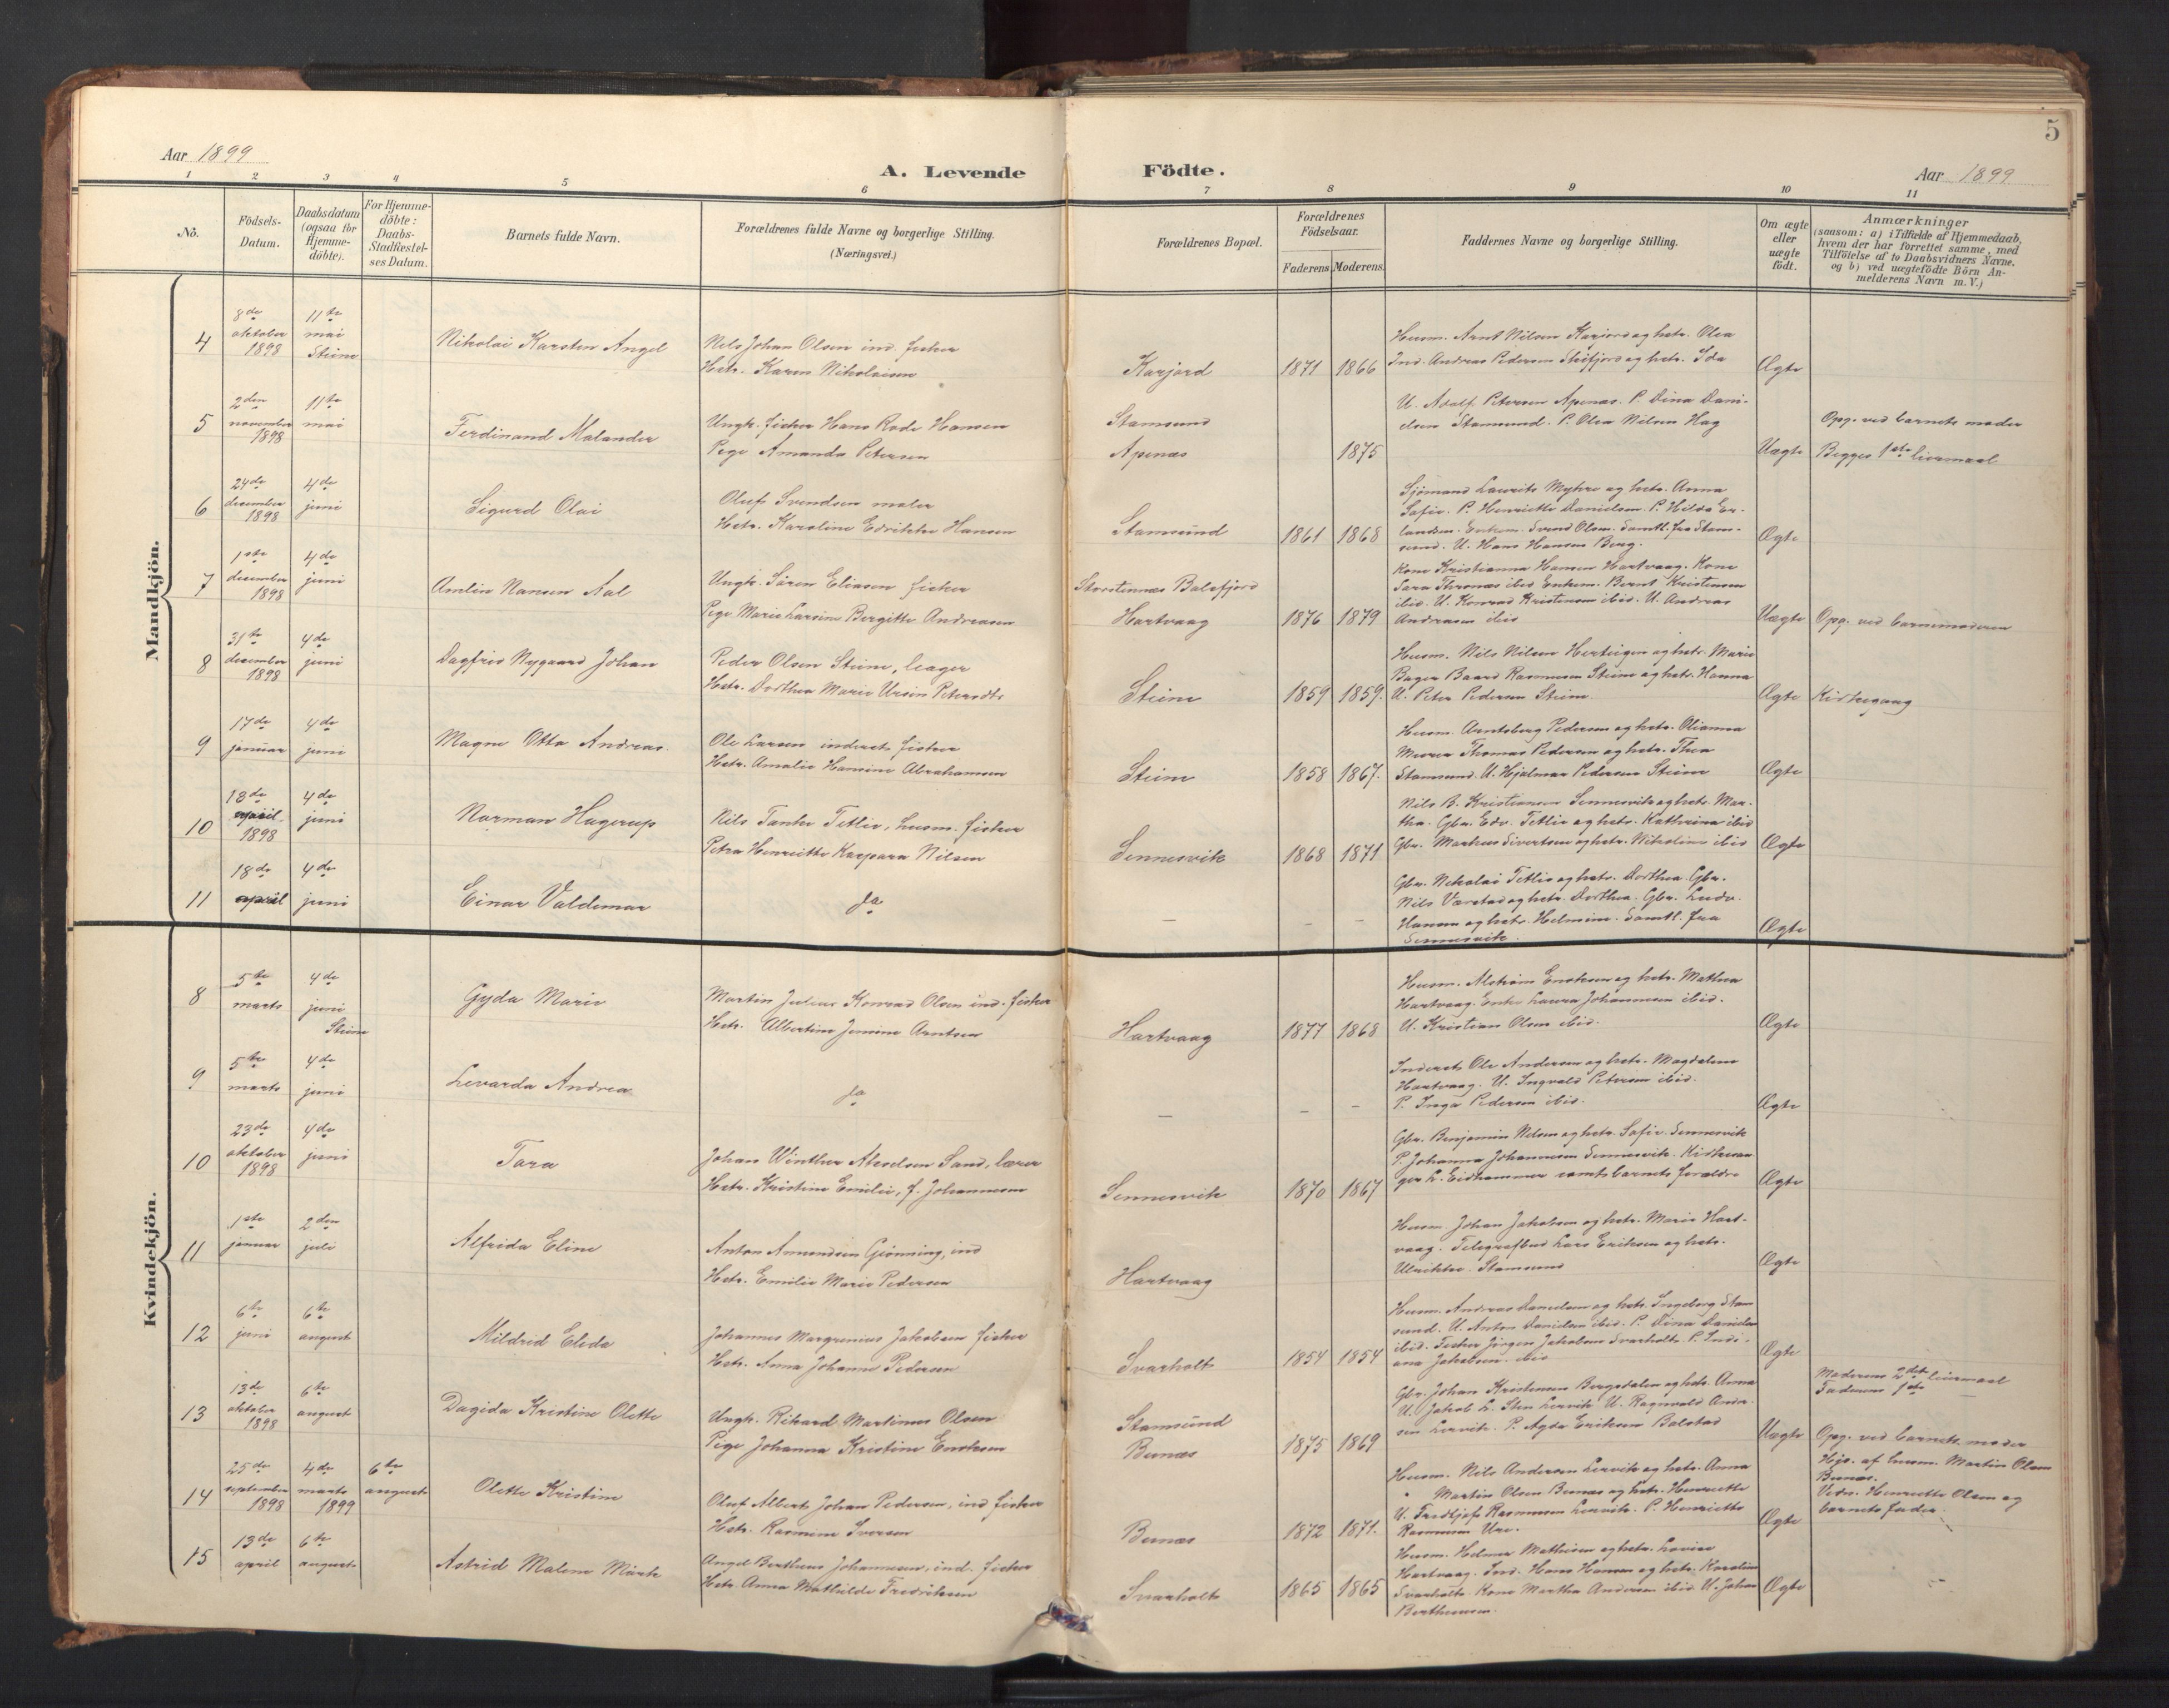 5
Aar 1899
A. Levende
Födte.
Aar 1899
1 2 3 4 5 6 7 8 9 10 11
No.
Födsels-Datum.
Daabsdatum (ogsaa for Hjemme-döbte).
For Hjemme-döbte: Daabs-Stadfestel-ses Datum.
Barnets fulde Navn.
Forældrenes fulde Navne og borgerlige Stilling.
(Næringsvei.)
Forældrenes Bopæl.
Forældrenes Födselsaar.
Faderens Moderens
Faddernes Navne og borgerlige Stilling.
Om ægte eller uægte födt.
Anmærkninger
(saasom: a) i Tilfælde af Hjemmedaab,
hvem der har forrettet samme, med
Tilföielse af to Daabsvidners Navne,
og b) ved uægtefödte Börn An-
melderens Navn m. V.)
Mandkjön.
4
8de oktober 1898
11te mai Steine
Nikolai Karsten Angel
Nils Johan Olsen ind. fisker
Hstr. Karen Nikolaisen
Karjord
1871 1866
Husm. Arnt Nilsen Karjord og hstr. Olea
Ind. Andreas Pedersen Skifjord og hstr. Ida
Ægte
5
2den november 1898
11te mai
Ferdinand Malander
Ungk. fisker Hans Rade Hansen
Pige Amanda Petersen
Stamsund
Apenæs
1875
U. Adolf Petersen Apenæs. P. Dina Dani-
elsen Stamsund. P. Olea Nilsen Hag
Uægte
Opg. ved barnets moder
Begges 1ste leiermaal
6
24de december 1898
4de juni
Sigurd Olai
Oluf Svendsen maler
Hstr. Karoline Edrikke Hansen
Stamsund
1861 1868
Sjømand Laurits Myhre og hstr. Anna
Sofie. P. Henriette Danielsen. P. Hilda Er-
landsen. Enkem. Svend Olsen. Samtl. fra Stam-
sund. U. Hans Hansen Berg.
Ægte
7
1ste december 1898
4de juni
Amlin Nansen Aal
Ungk. Søren Eliasen fisker
Pige Marie Larsine Bergitte Andreasen
Storstennæs Balsfjord
Hartvaag
1876 1879
Kone Kristianna Hansen Hartvaag. Kone
Sara Thronæs ibid Enkem. Bernt Kristensen
ibid. U. Konrad Kristensen ibid. U. Andreas
Andreasen ibid
Uægte
Opg. ved barnemoderen
8
31te december 1898
4de juni
Dagfrid Nygaard Johan
Peder Olsen Steine, bager
Hstr. Dorthea Marie Ursin Petersdtr
Steine
1859 1859.
Husm. Nils Nilsen Herteigen og hstr. Marie
Bager Baard Rasmussen Steine og hstr. Hanna
U. Peter Pedersen Steine.
Ægte
Kirkegang
9
17de januar
4de juni
Magne Otto Andreas
Ole Larsen inderst, fisker
Hstr. Amalie Hansine Abrahamsen
Steine
1858 1867.
Husm. Arntsberg Pedersen og hstr. Olianna
Murer Thomas Pedersen og hstr. Thea
Stamsund. U. Hjalmar Pedersen Steine
Ægte
10
18de april 1898
4de juni
Norman Hagerup
Nils Tanke Tetlie, husm. fisker
Petra Henriette Kaspara Nilsen
Sennesvik
1868 1871
Nils B. Kristiansen Sennesvik og hstr. Mar-
tha. Gbr. Edv. Tetlie og hstr. Kathrina ibid
Gbr. Markus Sivertsen og hstr. Nikoline ibid
Ægte
11
18de april
4de juni
Einar Valdemar
do
– – –
Gbr. Nikolai Tetlie og hstr. Dorthea. Gbr.
Nils Værstad og hstr. Dorthea. Gbr. Ludv.
Hansen og hstr. Helmine. Samtl. fra
Sennesvik.
Ægte
Kvindekjön.
8
5te marts
4de juni Steine
Gyda Marie
Martin Julius Konrad Olsen ind. fisker
Hstr. Albertine Jensine Arntsen
Hartvaag
1877 1868
Husm. Alstrøm Enoksen og hstr. Mathea
Hartvaag. Enke Laura Johannesen ibid.
U. Kristian Olsen ibid.
Ægte
9
5te marts
4de juni
Levarda Andrea
do
– – –
Inderst Ole Andersen og hstr. Magdalena
Hartvaag. U. Ingvald Petersen ibid.
P. Inga Pedersen ibid.
Ægte
10
23de oktober 1898
4de juni
Tora
Johan Winther Akselsen Sand, lærer
Hstr. Kristine Emilie, f. Johannesen
Sennesvik
1870 1867
Gbr. Benjamin Nilsen og hstr. Sofie. Sennesvik
P. Johanna Johannesen Sennesvik. Kirkesan-
ger L. Eidhammer samt barnets forældre
Ægte
11
1ste januar
2den juli
Alfrida Eline
Anton Amundsen Gionning, ind
Hstr. Emilie Marie Pedersen
Hartvaag
Husm. Johan Jakobsen og hstr. Marie Hart-
vaag. Telegrafbud Lars Eriksen og hstr.
Ulrikke. Stamsund
Ægte
12
6te juni
6te august
Mildrid Elida
Johannes Margrenius Jakobsen fisker
Hstr. Anna Johanna Pedersen
Svarholt
1854 1854
Husm. Andreas Danielsen og hstr. Ingeborg Stam
sund. U. Anton Danielsen ibid. P. Dina Danielsen
ibid. Fisker Jørgen Jakobsen Svarholt. P. Indi-
ana Jakobsen. ibid
Ægte
13
13de oktober 1898
6te august
Dagida Kristine Olette
Ungk. Rikard Martinus Olsen
Pige Johanna Kristine Enoksen
Stamsund
Bunæs
1875 1869
Gbr. Johan Kristensen Bergsdalen og hstr. Anna
U. Jakob L. Sten Lervik U. Ragnvald Andr-
sen Lervik. P. Agda Eriksen Balstad
Uægte
Moderens 2det leiermaal
Faderens 1ste —
Opg. ved barnets moder
14
25de september 1898
4de marts 1899
6te august
Olette Kristine
Oluf Albert Johan Pedersen, ind fisker
Hstr. Rasmine Iversen
Bunæs
1872 1871.
Husm. Nils Andersen Lervik og hstr. Anna
" Martin Olsen Bunæs og hstr. Henriette
U. Fredtjof Rasmussen Lervik. P. Henriette
Rasmussen Ure.
Ægte
Hjd. af husm. Martin Olsen
Bunæs.
Vidn. Henriette Olsen og
barnets fader.
15
13de april
6te august
Astrid Malene Marte
Angel Bertheus Johannesen, ind. fisker
Hstr. Anna Mathilde Fredriksen
Svarholt
1865 1865
Husm. Helmer Mathisen og hstr. Lovise
Hartvaag. Ind. Hans Hansen og hstr. Karoline
Svarholt. Kone Martha Andersen ibid. U. Johan
Bertheussen.
Ægte